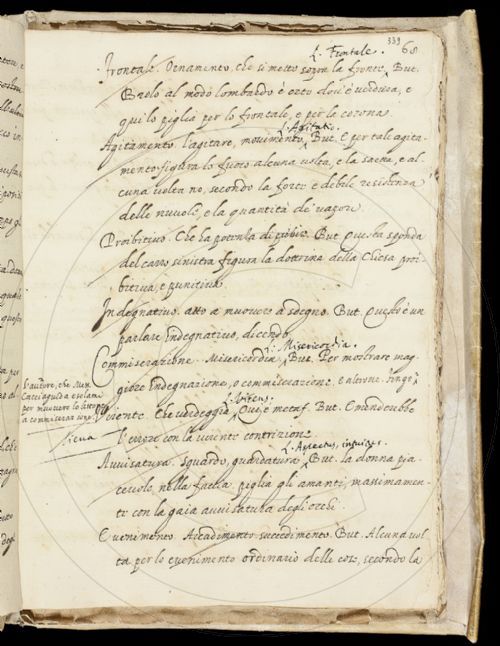 339
68
L. Frontale.
Frontale. Ornamento, che si mette sopra la fronte. But.
Brolo al modo lombardo è orto dov'è verdura, e
qui lo piglia per lo frontale, e per la corona.
L. Agitatio.
Agitamento. l'agitare, movimento. But. E per tale agita-
mento figura lo fuoco alcuna volta, e la saetta, e al-
cuna volta no, secondo la forte e debile resistenza
delle nuvoli, e la quantità de' vapori.
Proibitivo. Che ha potenza di proibire. But. Questa sponda
del carro sinistra figura la dottrina della Chiesa proi-
bitiva, e punitiva.
Indegnativo. atto a muovere a sdegno. But. Questo è un
parlare indegnativo, dicendo
L. Misericordia.
Commiserazione. Misericordia. But. Per mostrare mag-
giore indegnazione, o commiserazione. e altrove
L'autore, che
Cacciaguida esclami
per muovere lo
a commiserazione
L. Virens.
Vivente. Che verdeggia. Qui è metaf. But. Emenderebbe
Siena
l'errore con la vivente contrizione
L. Aspectus, intuitus.
Avvisatura. Sguardo, guardatura. But. la donna pia-
cevole nella faccia piglia gli amanti, massimamen-
te con la gaia avvisatura degli occhi.
Evenimento. Accadimento, succedimento. But. Alcuna vol-
ta per lo evenimento ordinario delle cose, secondo la